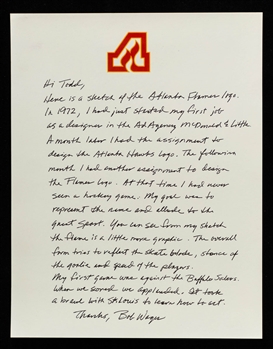 Hi Todd,
Here is a sketch of the Atlanta Flames logo.
In 1972, I had just started my first job
as a designer in the Ad Agency McDonald & Little
A month later I had the assignment to
design the Atlanta Hawks logo. The following
month I had another assignment to design
the Flames logo. At that time I had never
seen a hockey game. My goal was to
represent the name and allude to the
great sport. You can see from my sketch
the flame is a little more graphic. The overall
form tries to reflect the skate blade, stance of
the goalie and speed of the players.
My first game was against the Buffalo Sabres.
When we scored we applauded. It took
a break with to learn how to act.
Thanks, Bob Wages